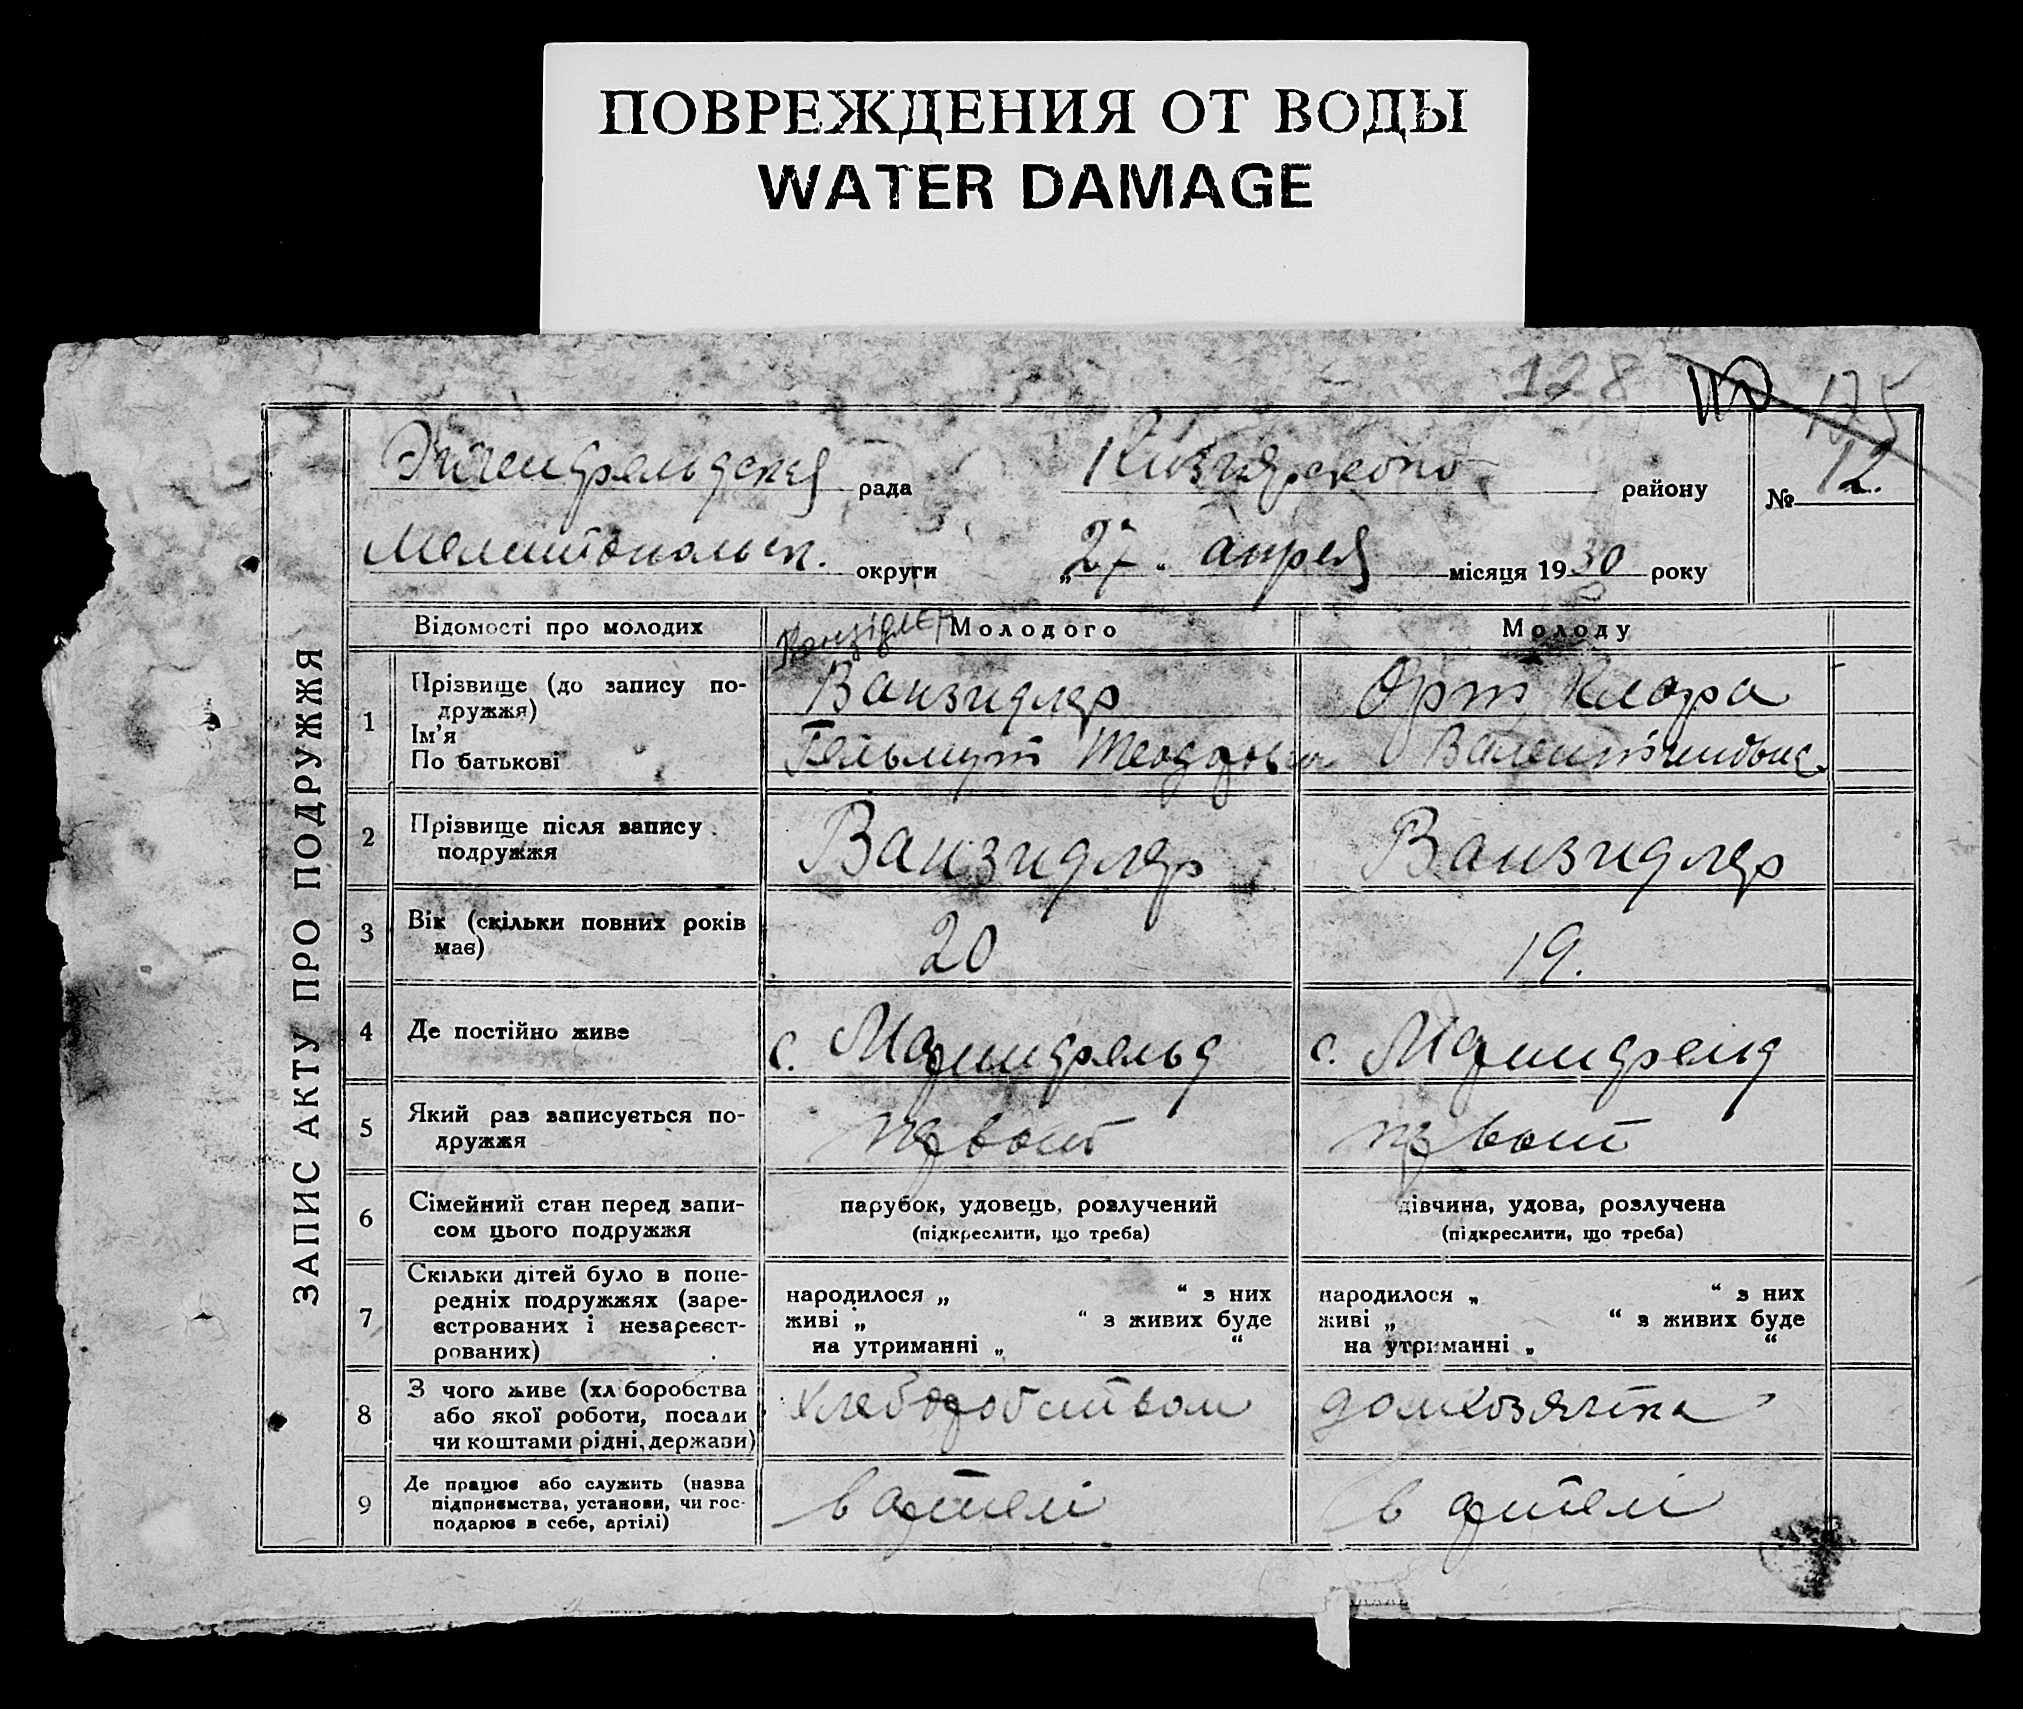 ПОВРЕЖДЕНИЯ ОТ ВОДЫ
WATER DAMAGE
128 175
рада Кизиярского району № 12.
Мелитопольск. округи „27. апреля місяця 1930 року
ЗАПИС АКТУ ПРО ПОДРУЖЖЯ
Відомості про молодих Молодого Молоду
1 Прізвище (до запису по-
дружжя)
Ім'я
По батькові
Ванзидлер Орт Клара
Гельмут Теодоров Валентиновна
2 Прізвище після запису
подружжя
Ванзидлер Ванзидлер
3 Вік (скільки повних років
має)
20 19.
4 Де постійно живе с. Мариифельд с. Мариифелд
5 Який раз записується по-
дружжя
6 Сімейний стан перед запи-
сом цього подружжя
парубок, удовець, розлучений дівчина, удова, розлучена
(підкреслити, що треба) (підкреслити, що треба)
7 Скільки дітей було в попе-
редніх подружжях (заре-
єстрованих і незареєст-
рованих)
народилося „ “ з них народилося „ “ з них
живі „ “ з живих буде живі „ “ з живих буде
на утриманні „ “ на утриманні „ “
8 З чого живе (хліборобства
або якої роботи, посади
чи коштами рідні, держави)
хлеборобством домхозяйка
9 Де працює або служить (назва
підприємства, установи, чи гос-
подарює в себе, артілі)
в артелі в артелі